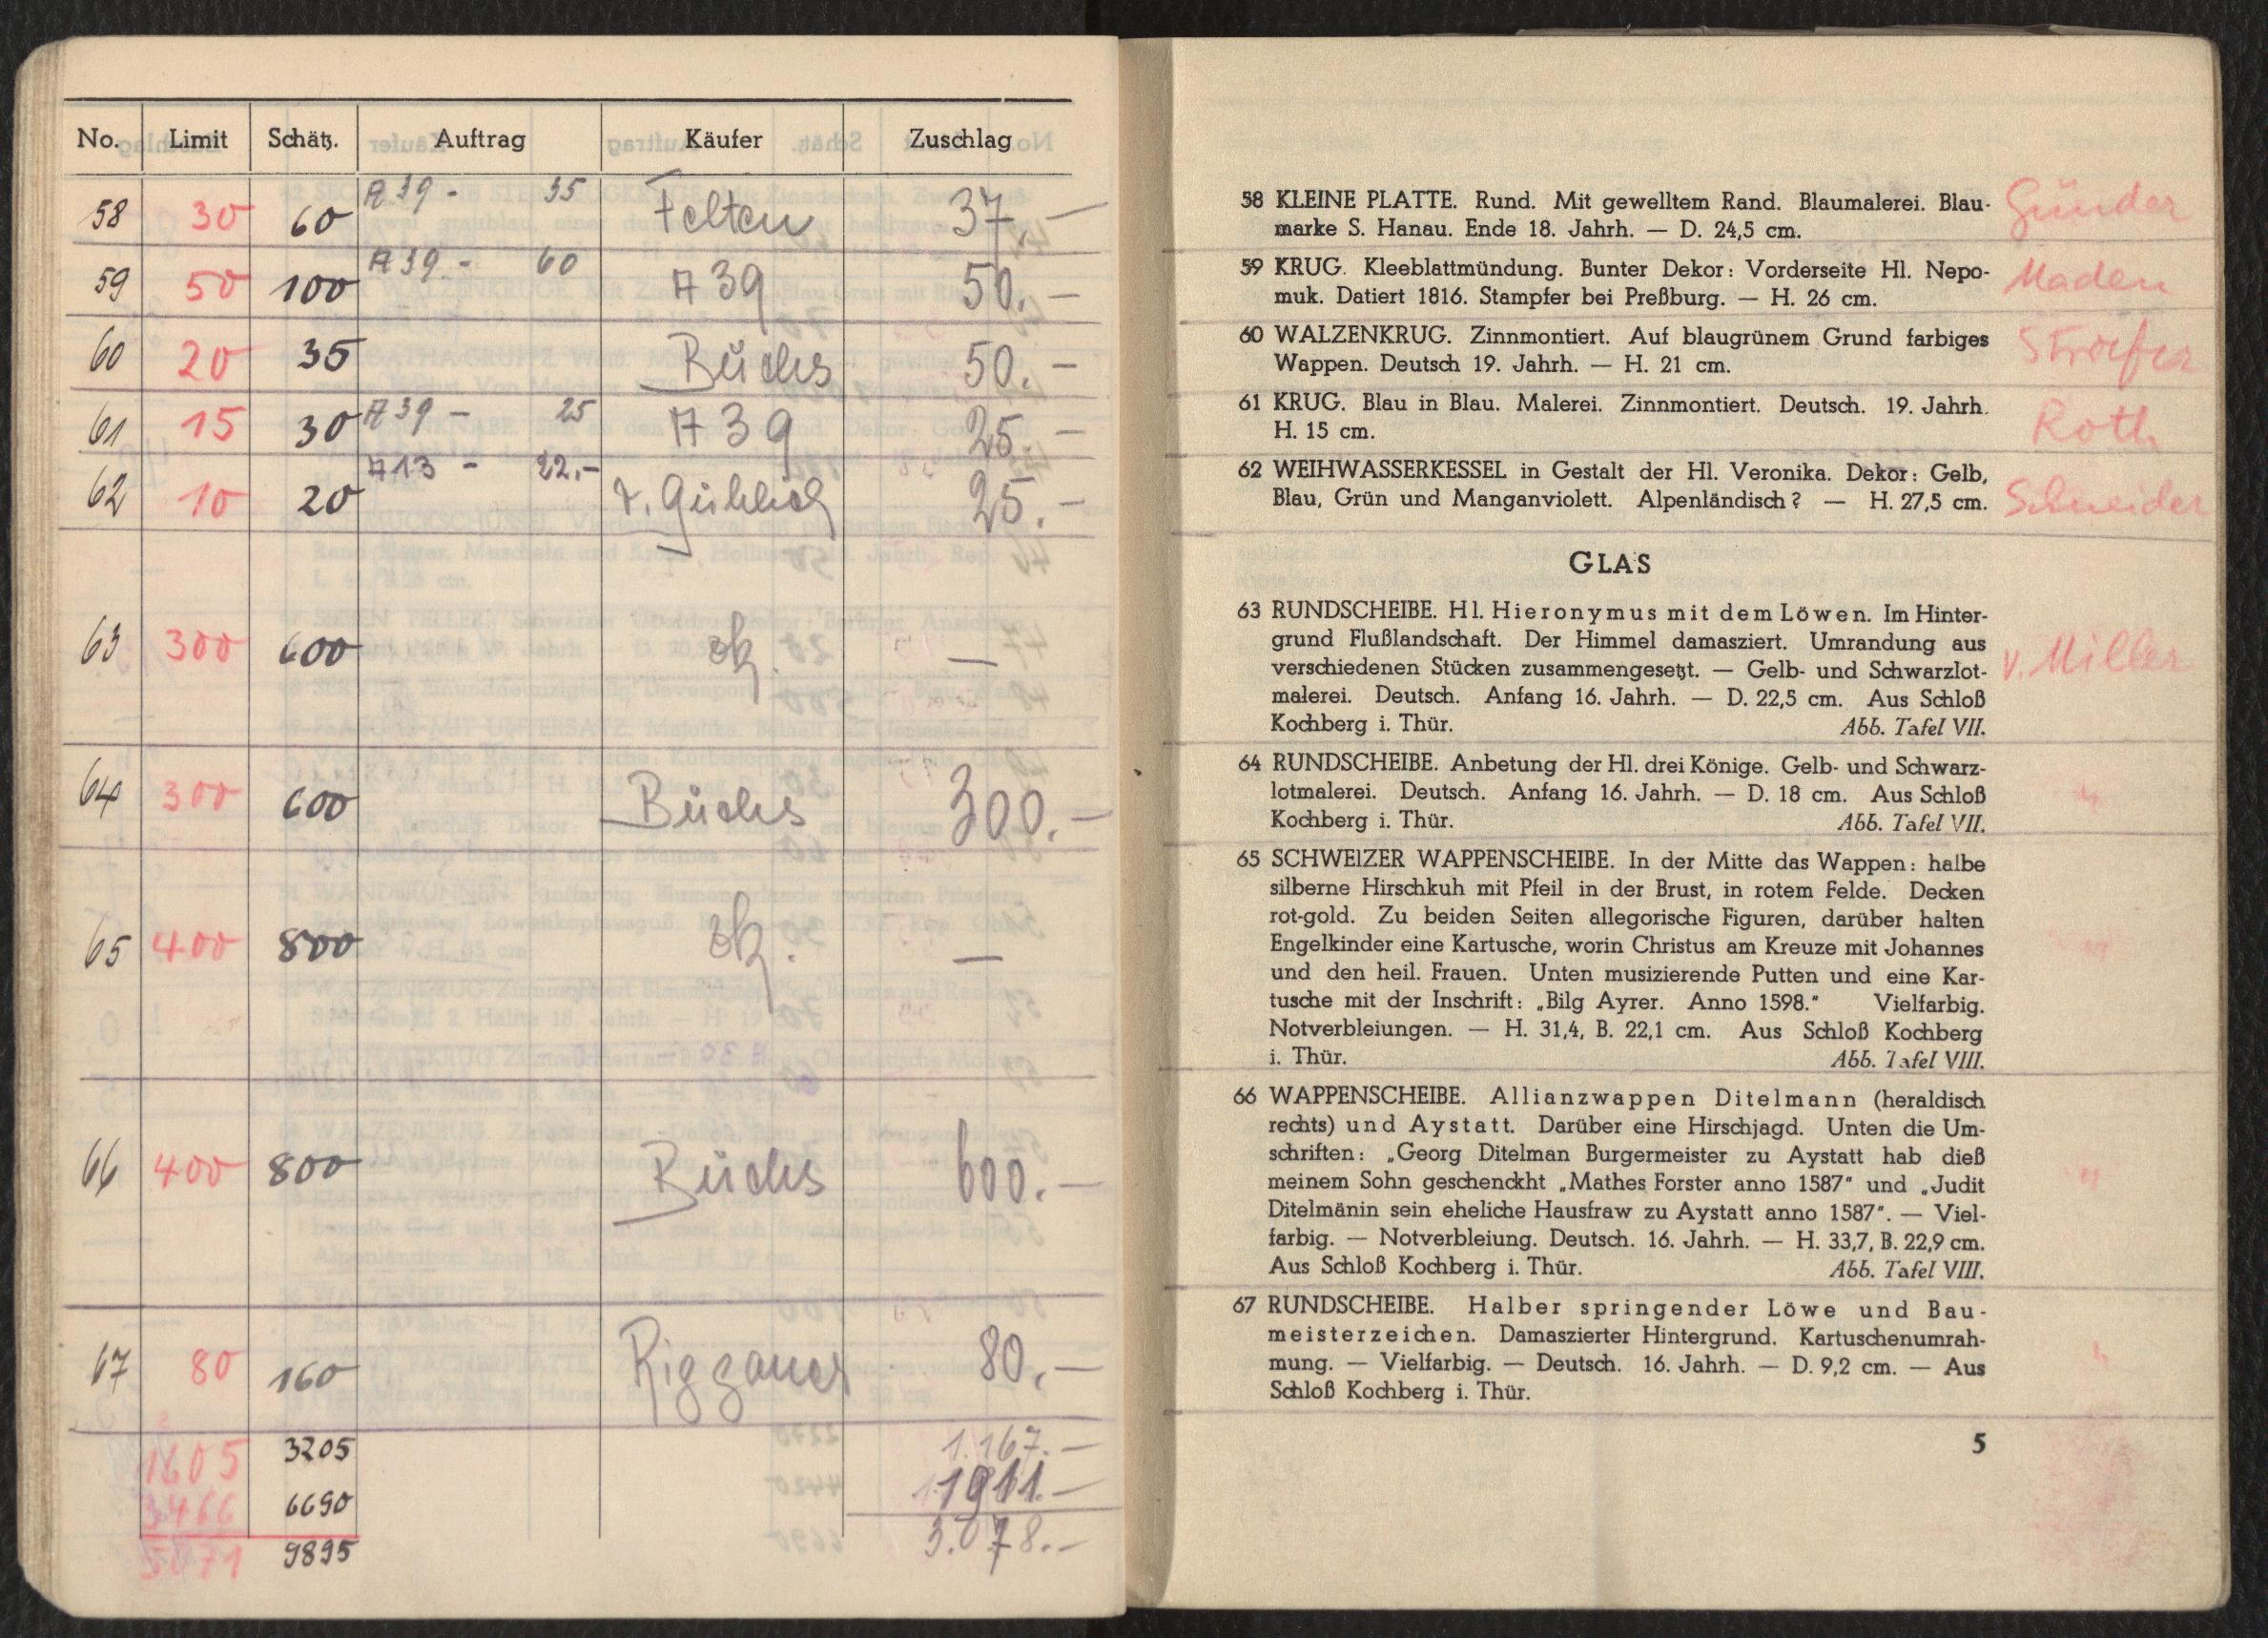 No. Limit Schätz. Auftrag Käufer Zuschlag
58 30 60 A 39 - 35 Felten 37.—
59 50 100 A 39 - 60 A 39 50.—
60 20 35 Büchs 50.—
61 15 30 A 39 - 25 A 39 25.—
62 10 20 A13 - 22.- 25.—
63 300 600 —
64 300 600 Büchs 300.—
65 400 800 —
66 400 800 Büchs 600.—
67 80 160 Riggauer 80.—
1605 3205 1.167.—
3466 6690 1911.—
5071 9895 3.078.—
58 KLEINE PLATTE. Rund. Mit gewelltem Rand. Blaumalerei. Blau- Günder
marke S. Hanau. Ende 18. Jahrh. — D. 24,5 cm.
59 KRUG. Kleeblattmündung. Bunter Dekor: Vorderseite Hl. Nepo- Maden
muk. Datiert 1816. Stampfer bei Preßburg. — H. 26 cm.
60 WALZENKRUG. Zinnmontiert. Auf blaugrünem Grund farbiges
Wappen. Deutsch 19. Jahrh. — H. 21 cm.
61 KRUG. Blau in Blau. Malerei. Zinnmontiert. Deutsch. 19. Jahrh. Roth
H. 15 cm.
62 WEIHWASSERKESSEL in Gestalt der Hl. Veronika. Dekor: Gelb,
Blau, Grün und Manganviolett. Alpenländisch? — H. 27,5 cm. Schneider
GLAS
63 RUNDSCHEIBE. Hl. Hieronymus mit dem Löwen. Im Hinter-
grund Flußlandschaft. Der Himmel damasziert. Umrandung aus
verschiedenen Stücken zusammengesetzt. — Gelb- und Schwarzlot- v. Miller
malerei. Deutsch. Anfang 16. Jahrh. — D. 22,5 cm. Aus Schloß
Kochberg i. Thür. Abb. Tafel VII.
64 RUNDSCHEIBE. Anbetung der Hl. drei Könige. Gelb- und Schwarz-
lotmalerei. Deutsch. Anfang 16. Jahrh. — D. 18 cm. Aus Schloß "
Kochberg i. Thür. Abb. Tafel VII.
65 SCHWEIZER WAPPENSCHEIBE. In der Mitte das Wappen: halbe
silberne Hirschkuh mit Pfeil in der Brust, in rotem Felde. Decken
rot-gold. Zu beiden Seiten allegorische Figuren, darüber halten
Engelkinder eine Kartusche, worin Christus am Kreuze mit Johannes "
und den heil. Frauen. Unten musizierende Putten und eine Kar-
tusche mit der Inschrift: „Bilg Ayrer. Anno 1598." Vielfarbig.
Notverbleiungen. — H. 31,4, B. 22,1 cm. Aus Schloß Kochberg
i. Thür. Abb. Tafel VIII.
66 WAPPENSCHEIBE. Allianzwappen Ditelmann (heraldisch
rechts) und Aystatt. Darüber eine Hirschjagd. Unten die Um-
schriften: „Georg Ditelman Burgermeister zu Aystatt hab dieß
meinem Sohn geschenckht „Mathes Forster anno 1587" und „Judit "
Ditelmänin sein eheliche Hausfraw zu Aystatt anno 1587". — Viel-
farbig. — Notverbleiung. Deutsch. 16. Jahrh. — H. 33,7, B. 22,9 cm.
Aus Schloß Kochberg i. Thür. Abb. Tafel VIII.
67 RUNDSCHEIBE. Halber springender Löwe und Bau-
meisterzeichen. Damaszierter Hintergrund. Kartuschenumrah-
mung. — Vielfarbig. — Deutsch. 16. Jahrh. — D. 9,2 cm. — Aus "
Schloß Kochberg i. Thür.
5